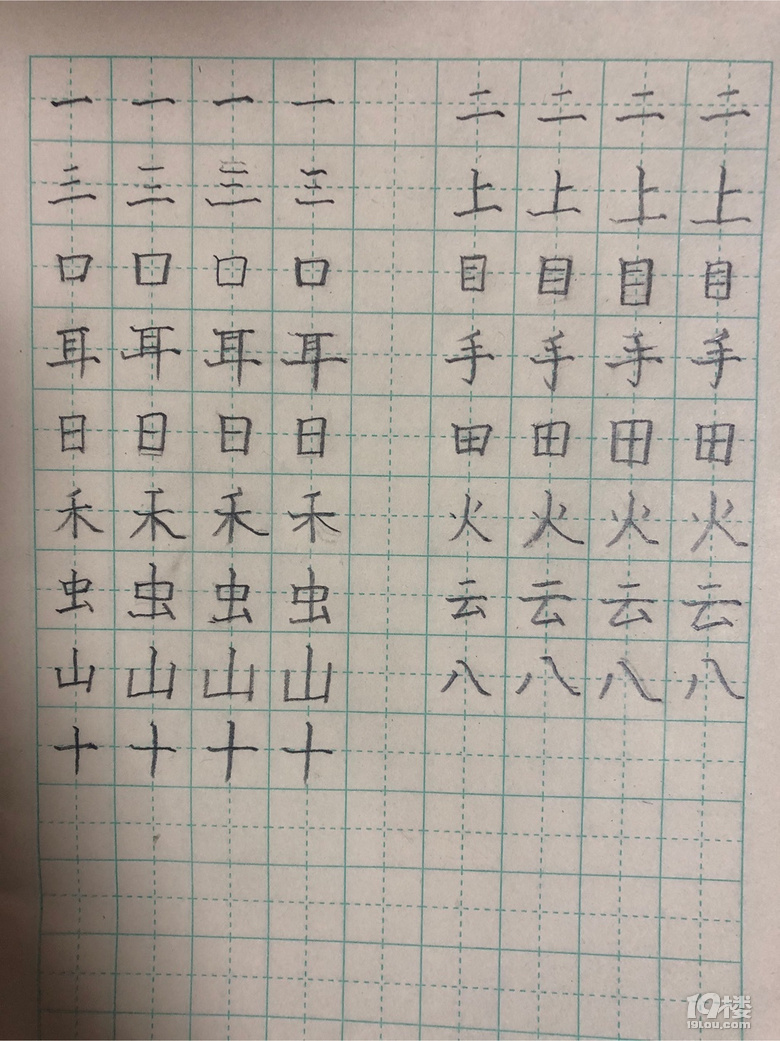 一 一 一 一 二 二 二 二
三 三 三 三 上 上 上 上
口 口 口 口 目 目 目 目
耳 耳 耳 耳 手 手 手 手
日 日 日 日 田 田 田 田
禾 禾 禾 禾 火 火 火 火
虫 虫 虫 虫 云 云 云 云
山 山 山 山 八 八 八 八
十 十 十 十
19楼
19lou.com